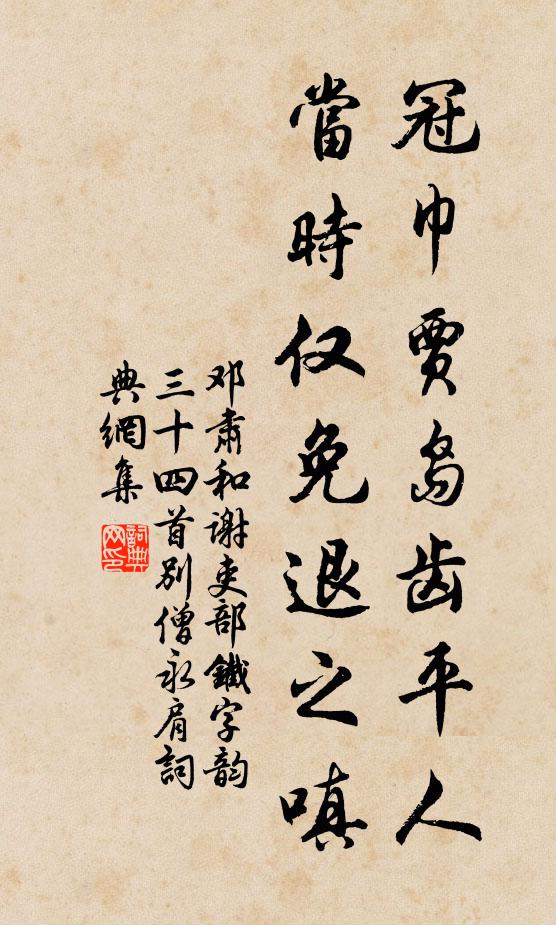 冠巾贾岛齿平人
當時仅免退之嗔
邓肃和谢吏部鐵字韵
三十四首别僧永肩詞
典網集
詞典網印